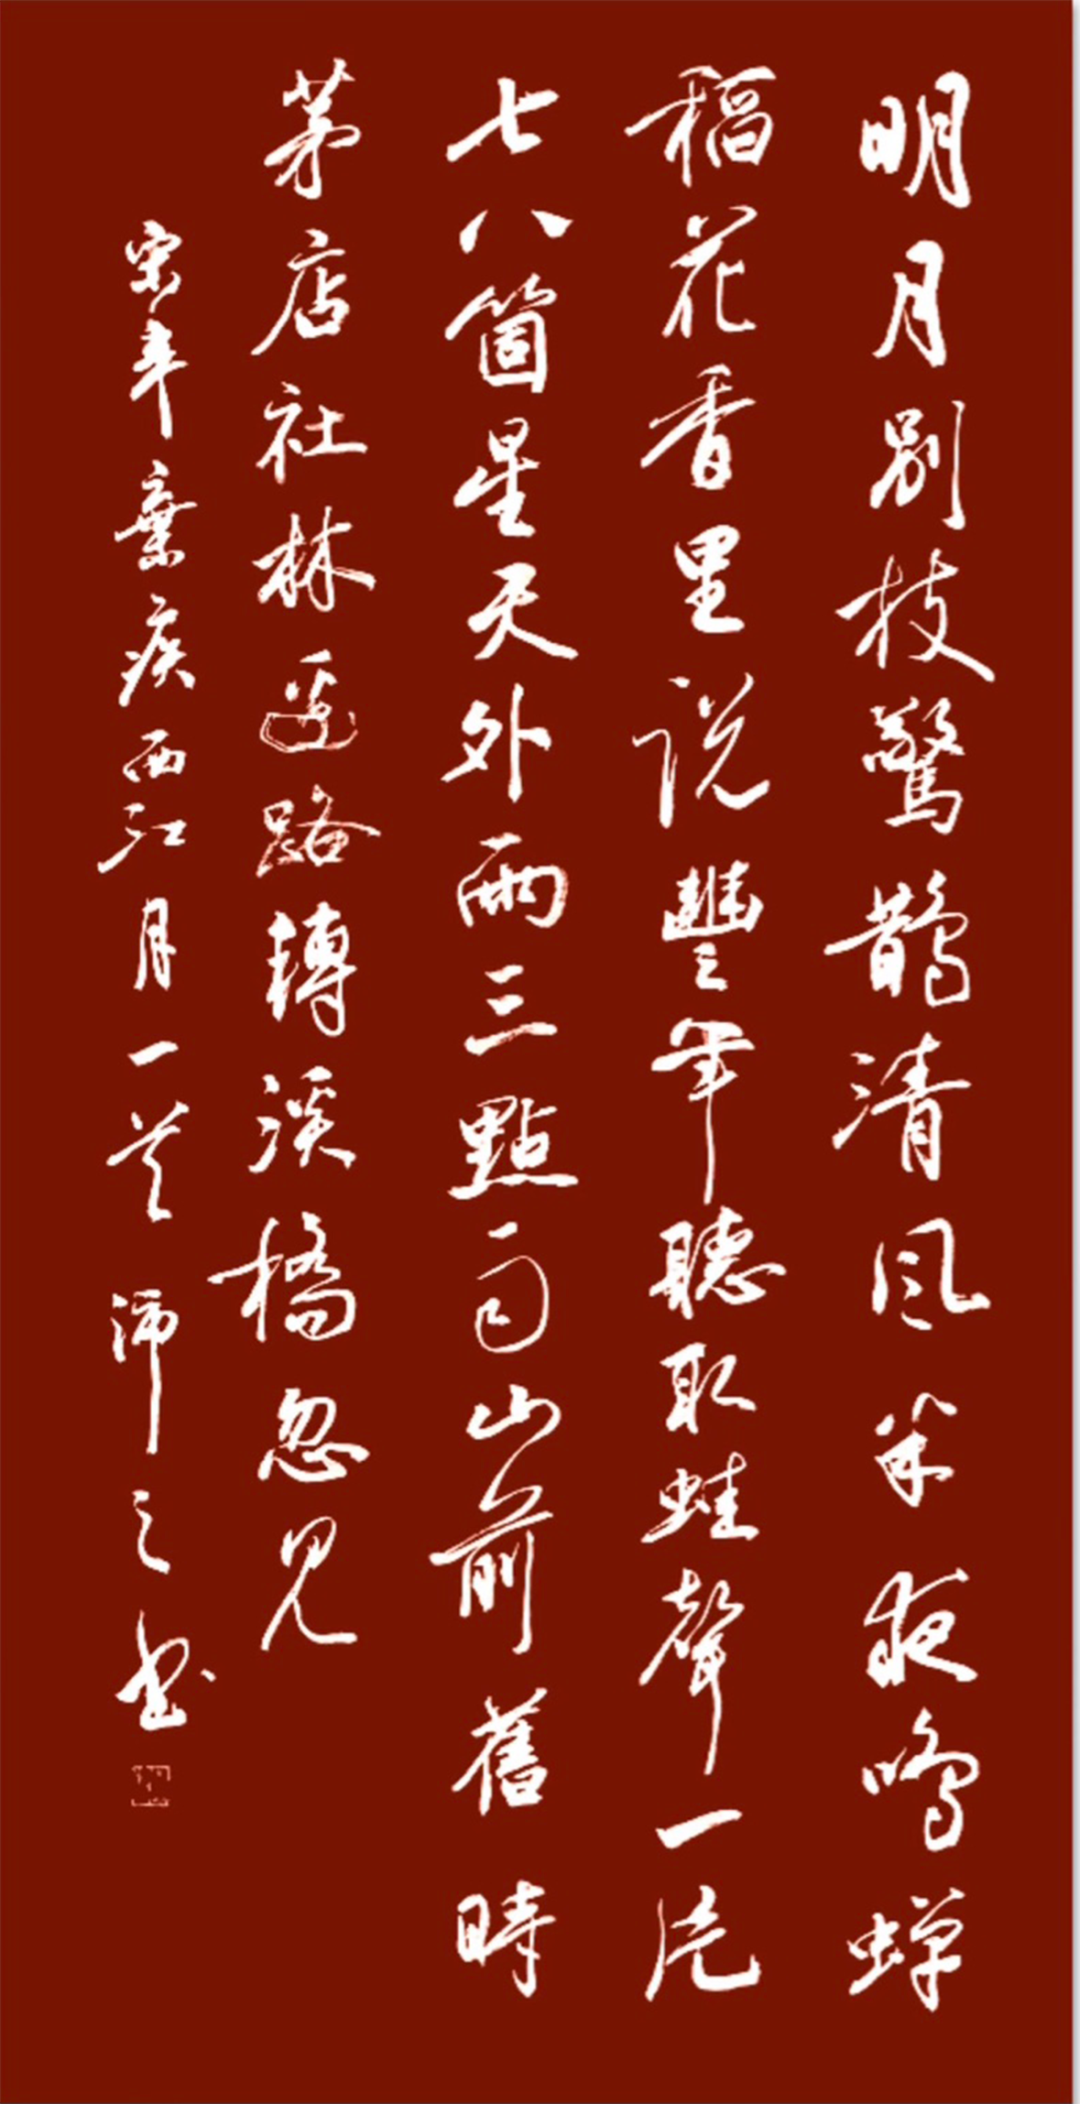 明月别枝驚鵲清风半夜鳴蝉
稻花香里説豐年聽取蛙聲一片
七八箇星天外兩三點雨山前舊時
茅店社林邊路轉溪橋忽見
宋辛棄疾西江月一首 沛之书